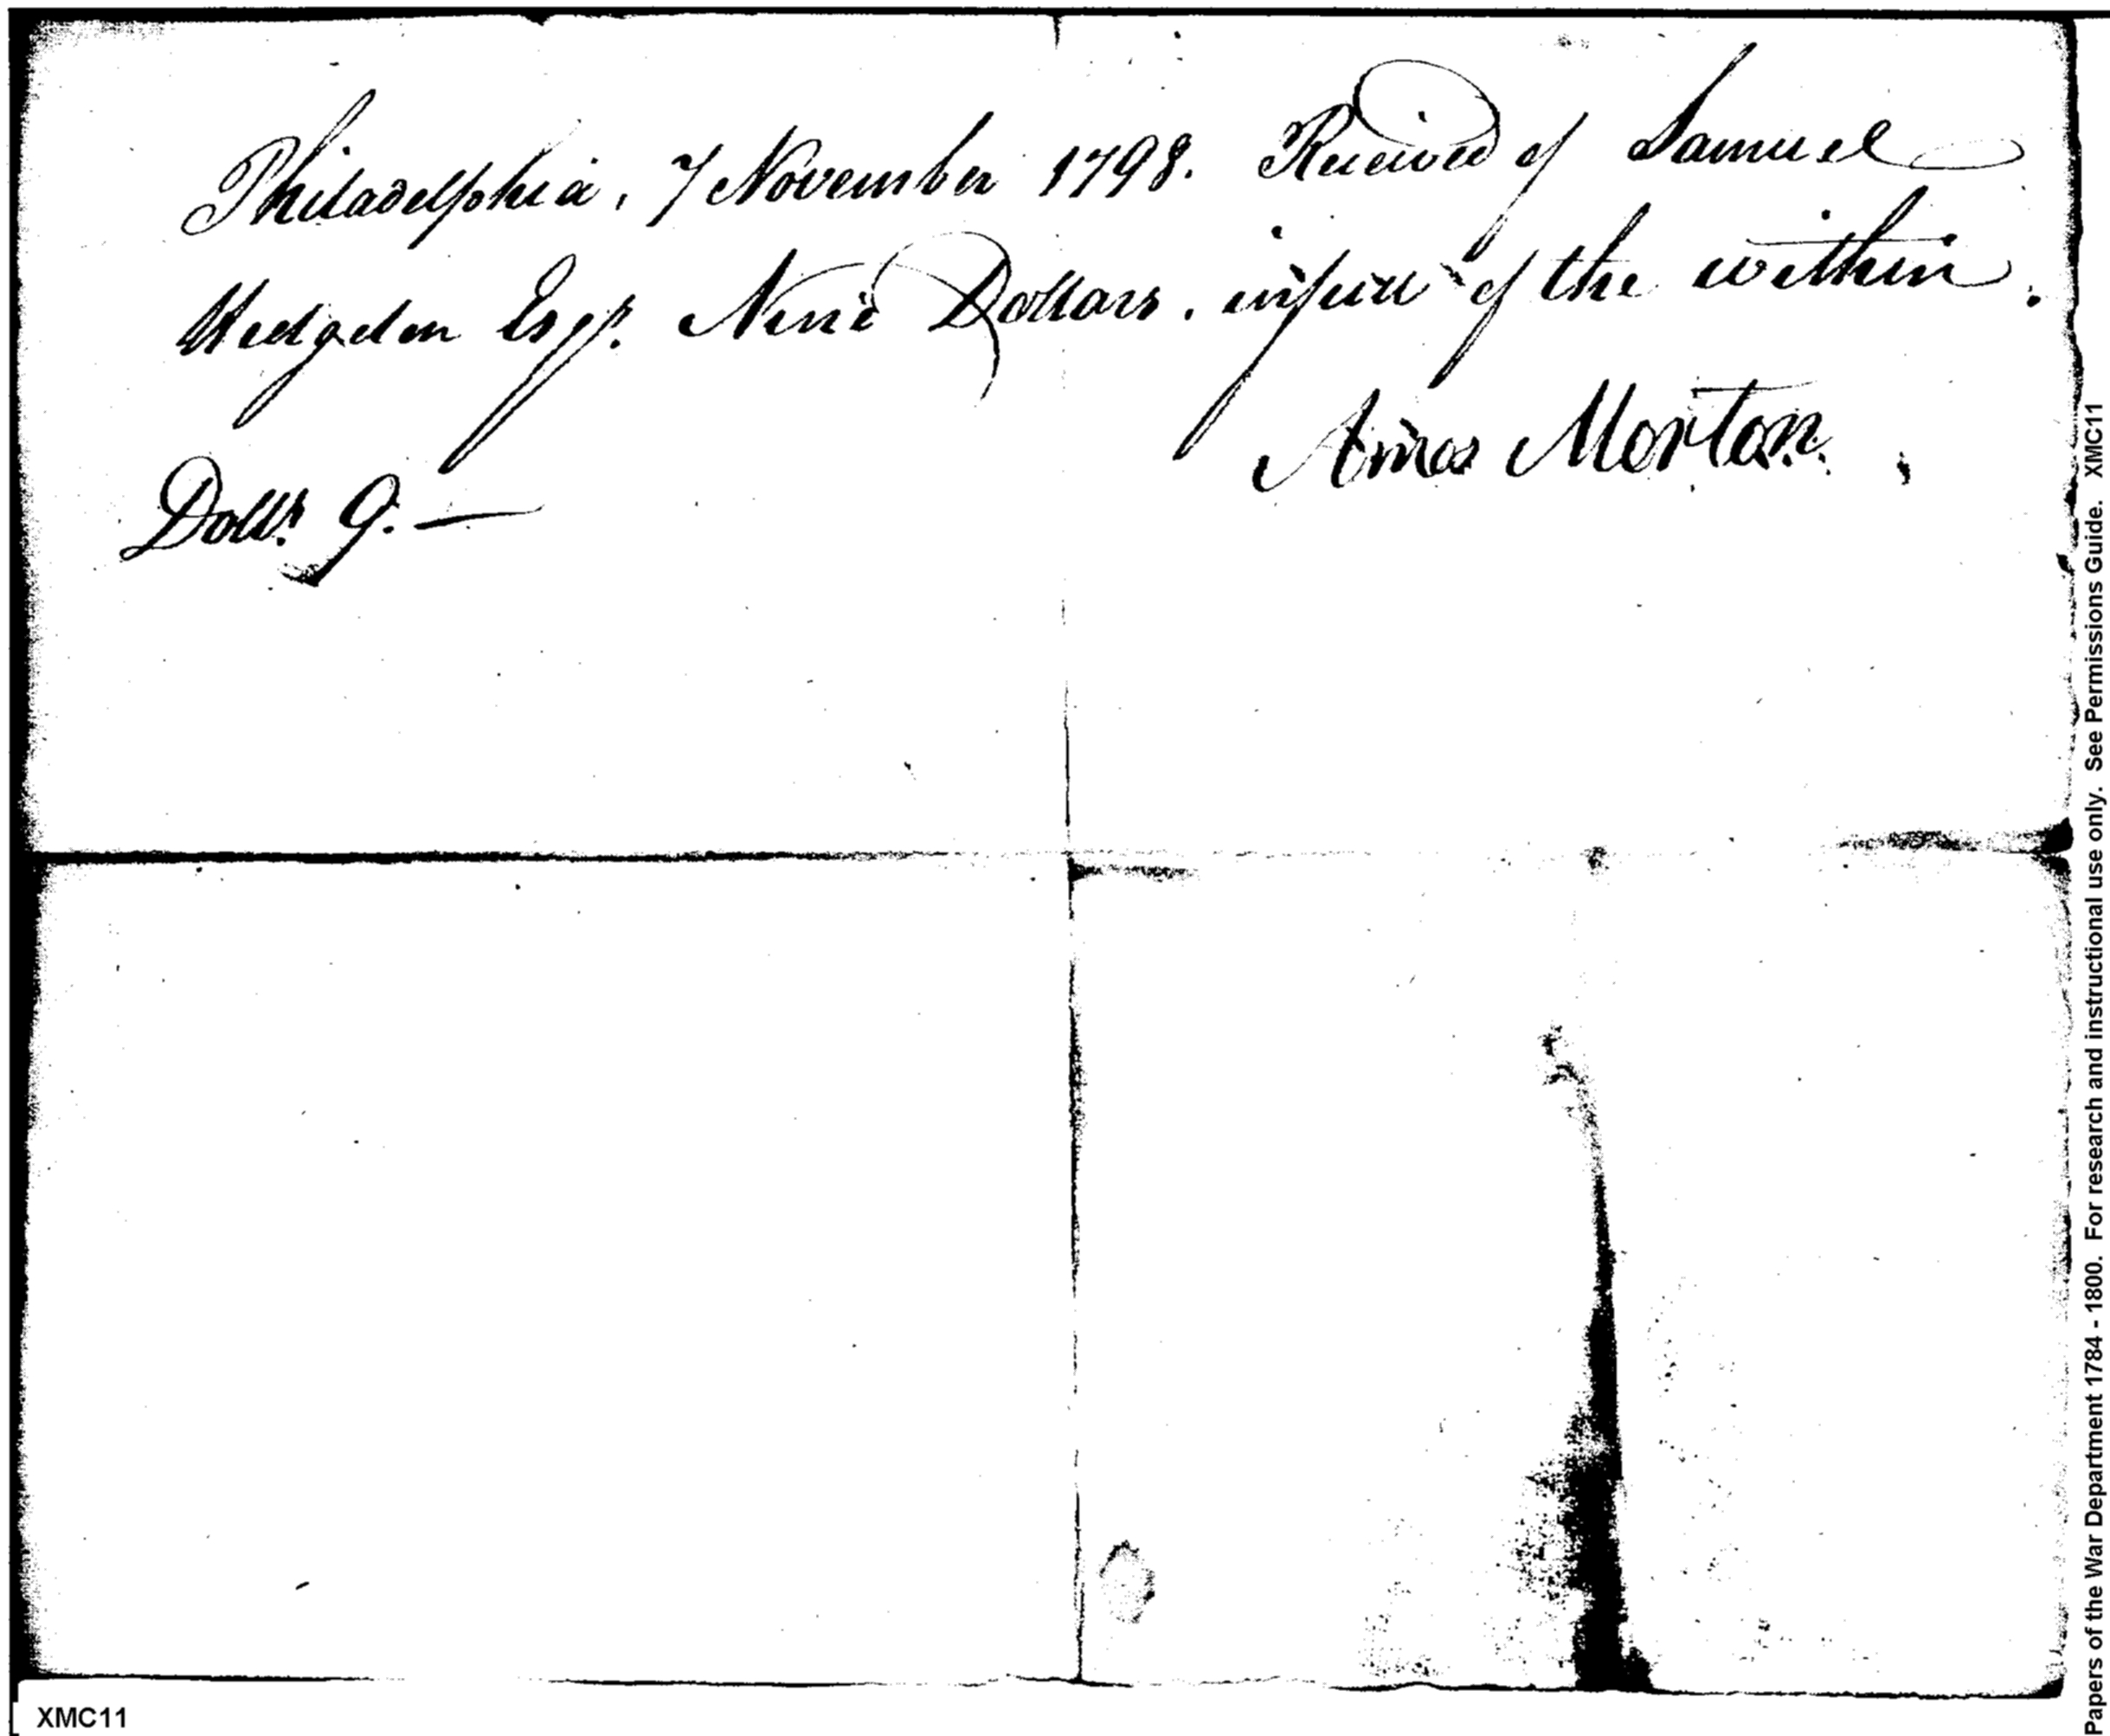 Philadelphia, 7 November 1798. Received of Samuel
Hodgdon Esqr. Nine Dollars. in full of the within.
Amos Morton.
Dolls. 9.—
Papers of the War Department 1784 - 1800. For research and instructional use only. See Permissions Guide. XMC11
XMC11